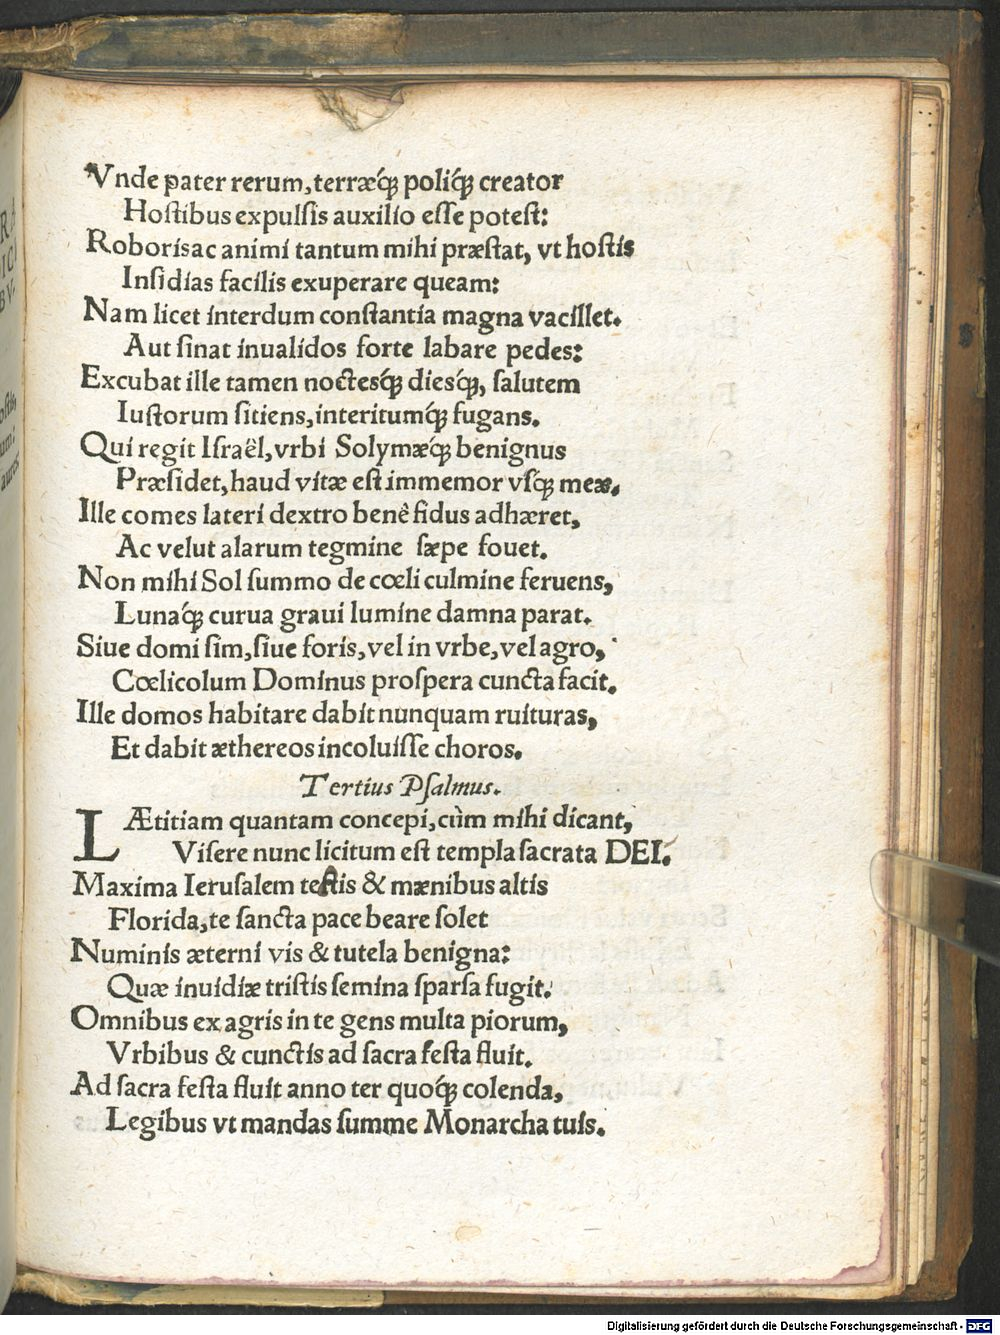 Vnde pater rerum, terræq́ꝫ poliq́ꝫ creator
Hoſtibus expulſis auxilio eſſe poteſt:
Roboris ac animi tantum mihi præſtat, vt hoſtis
Inſidias facilis exuperare queam:
Nam licet interdum conſtantia magna vacillet.
Aut ſinat inualidos forte labare pedes:
Excubat ille tamen noctesq́ꝫ diesq́ꝫ, ſalutem
Iuſtorum ſitiens, interitumq́ꝫ fugans.
Qui regit Iſraël, vrbi Solymæq́ꝫ benignus
Præſidet, haud vitæ eſt immemor vſq́ꝫ meæ.
Ille comes lateri dextro benè fidus adhæret,
Ac velut alarum tegmine ſæpe fouet.
Non mihi Sol ſummo de cœli culmine feruens,
Lunaq́ꝫ curua graui lumine damna parat.
Siue domi ſim, ſiue foris, vel in vrbe, vel agro,
Cœlicolum Dominus proſpera cuncta facit.
Ille domos habitare dabit nunquam ruituras,
Et dabit æthereos incoluiſſe choros.
Tertius Pſalmus.
LÆtitiam quantam concepi, cùm mihi dicant,
Viſere nunc licitum eſt templa ſacrata DEI.
Maxima Ieruſalem teƈtis & mænibus altis
Florida, te ſancta pace beare ſolet
Numinis æterni vis & tutela benigna:
Quæ inuidiæ triſtis ſemina ſparſa fugit.
Omnibus ex agris in te gens multa piorum,
Vrbibus & cunctis ad ſacra feſta fluit.
Ad ſacra feſta fluit anno ter quoq́ꝫ colenda,
Legibus vt mandas ſumme Monarcha tuis.
Digitalisierung gefördert durch die Deutsche Forschungsgemeinschaft - DFG